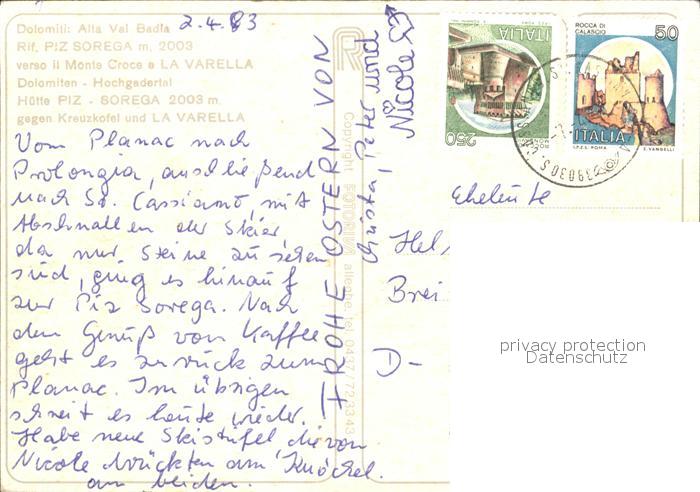 Dolomiti: Alta Val Badia
2.4.83
Rif. PIZ SOREGA m. 2003
verso il Monte Croce e LA VARELLA
Dolomiten - Hochgadertal
Hütte PIZ - SOREGA 2003 m.
gegen Kreuzkofel und LA VARELLA
Vom Planac nach
Prolongia, anschließend
nach St. Cassiano mit
Abschnallen der Skier
da nur Steine zu sehen
sind, ging es hinauf
zur Piz Sorega. Nach
dem Genuß von Kaffee
geht es zurück zum
Planac. Im übrigen
schneit es heute wieder.
Habe neue Skistiefel die von
Nicole drückten am Knöchel.
am beiden.
FROHE OSTERN VON
Christa, Peter und
Nicole
Copyright FOTORIVA
ITALIA
250
ROCCA DI
CALASCIO
50
ITALIA
I.P.Z.S. ROMA
E. VANGELLI
39030 S.
Eheleute
Hel
Brei
D-
privacy protection
Datenschutz